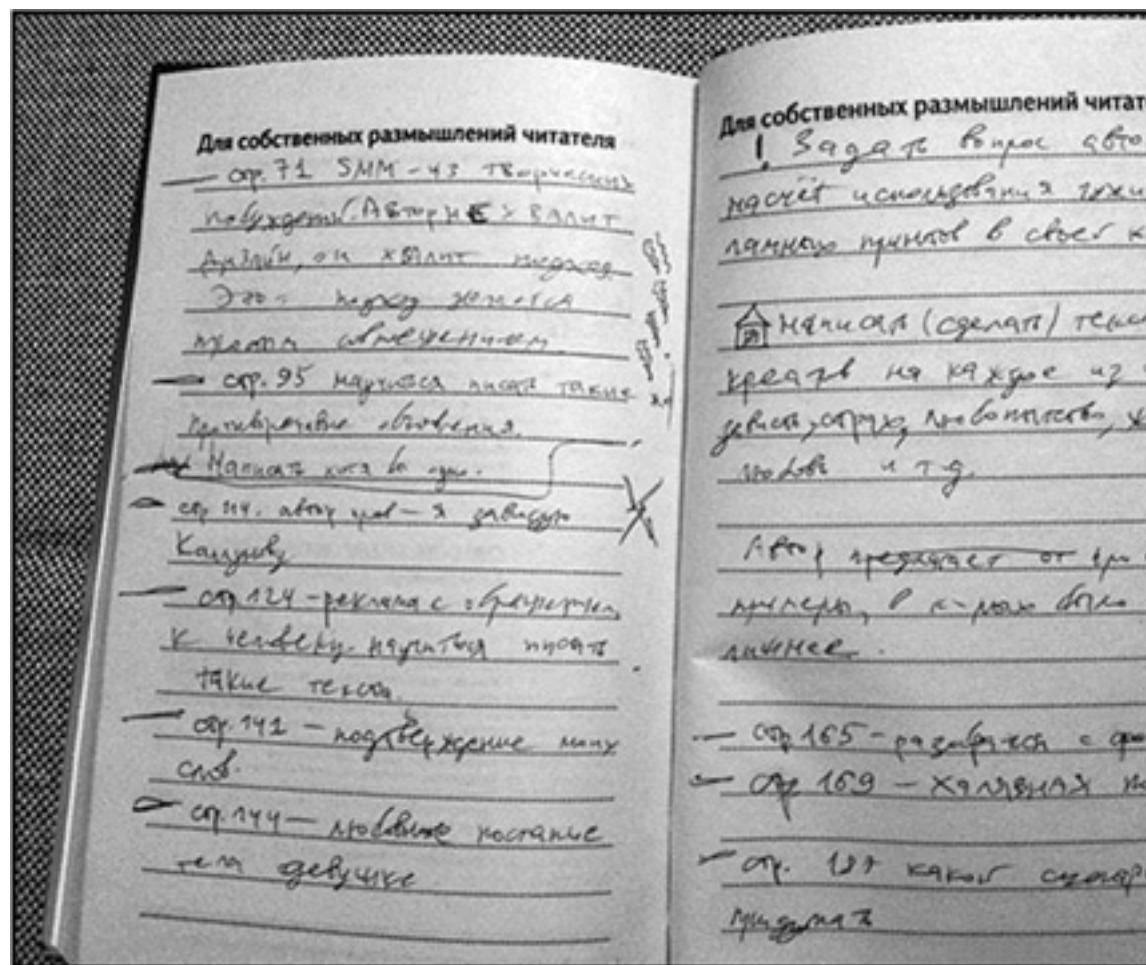 Для собственных размышлений читателя
— стр. 71 SMM – из творческих
побуждений. Автор НЕ хвалит
дизайн, он хвалит подход
Этот подход является
простым
— стр. 95 научиться писать такие
противоречивые объявления.
Написать хотя бы одно.
стр. 114. автор – я завидую
— стр. 124 – реклама с обращением
к человеку. научиться писать
такие тексты.
— стр. 141 – подтверждение моих
слов.
стр. 144 – любовные послание
тела девушке
Для собственных размышлений читат
! Задать вопрос авто
насчёт использования
пунктов в своей к
Написать (сделать) текс
креатив на каждое из
зависть, страх, любопытство, ж
любовь и т.д.
Автор предлагает от
примеры, в к-рых было
лишнее.
— стр 165 – разобраться с
стр 169 – халявная
стр. 187 какой сценар
придумать